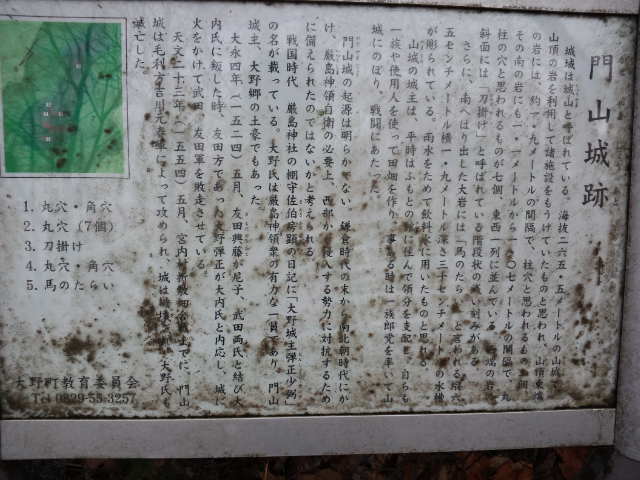 門山城跡
城域は城山と呼ばれている。海抜二六五・五メートルの山城で
山頂の岩を利用して諸施設をもうけていたものと思われ、山頂東端
の岩には、約一・九メートルの間隔で、柱穴と思われるもの二個
その南の岩にも一・一メートルから一・七メートルの間隔で、丸
柱の穴と思われるものが七個、東西一列に並んでいる。端の岩
斜面には「刀掛け」と呼ばれている階段状の浅い刻みがある。
さらに、南へはり出した大岩には「馬のたらい」と言われる
五センチメートル横一・九メートル深さ三十センチメートルの水槽
が彫られている。雨水をためて飲料水に用いたものと思れる。
山城の城主は、平時はふもとの館に住んで領分を支配し、自らも
一族や使用人を使って田畑を作り、事ある時は一族郎党を率いて山
城にのぼり、戦闘にあたった。
門山城の起源は明らかでない。鎌倉時代の末から南北朝時代にか
け、厳島神領自衛の必要上、西部から侵入する勢力に対抗するため
に備えられたのではないかと考えられる。
戦国時代、厳島神社の棚守佐伯房顕の日記に「大野城主弾正少弼」
の名が載っている。大野氏は厳島神領衆の有力な一員であり、門山
城主、大野郷の土豪でもあった。
大永四年(一五二四)五月、友田興藤が尼子、武田両氏と結び大
内氏に叛した時、友田方であった大野弾正が大内氏と内応し、城に
火をかけて武田、友田軍を敗走させている。
天文二十三年(一五五四)五月、宮内、までに、門山
城は毛利方吉川元春軍によって攻められ、城は、大野氏も
滅亡した。
1. 丸穴・角穴
2. 丸穴(7個)
3. 刀掛け
4. 丸穴・角穴
5. 馬のたらい
大野町教育委員会
Tel 0829-55-3257